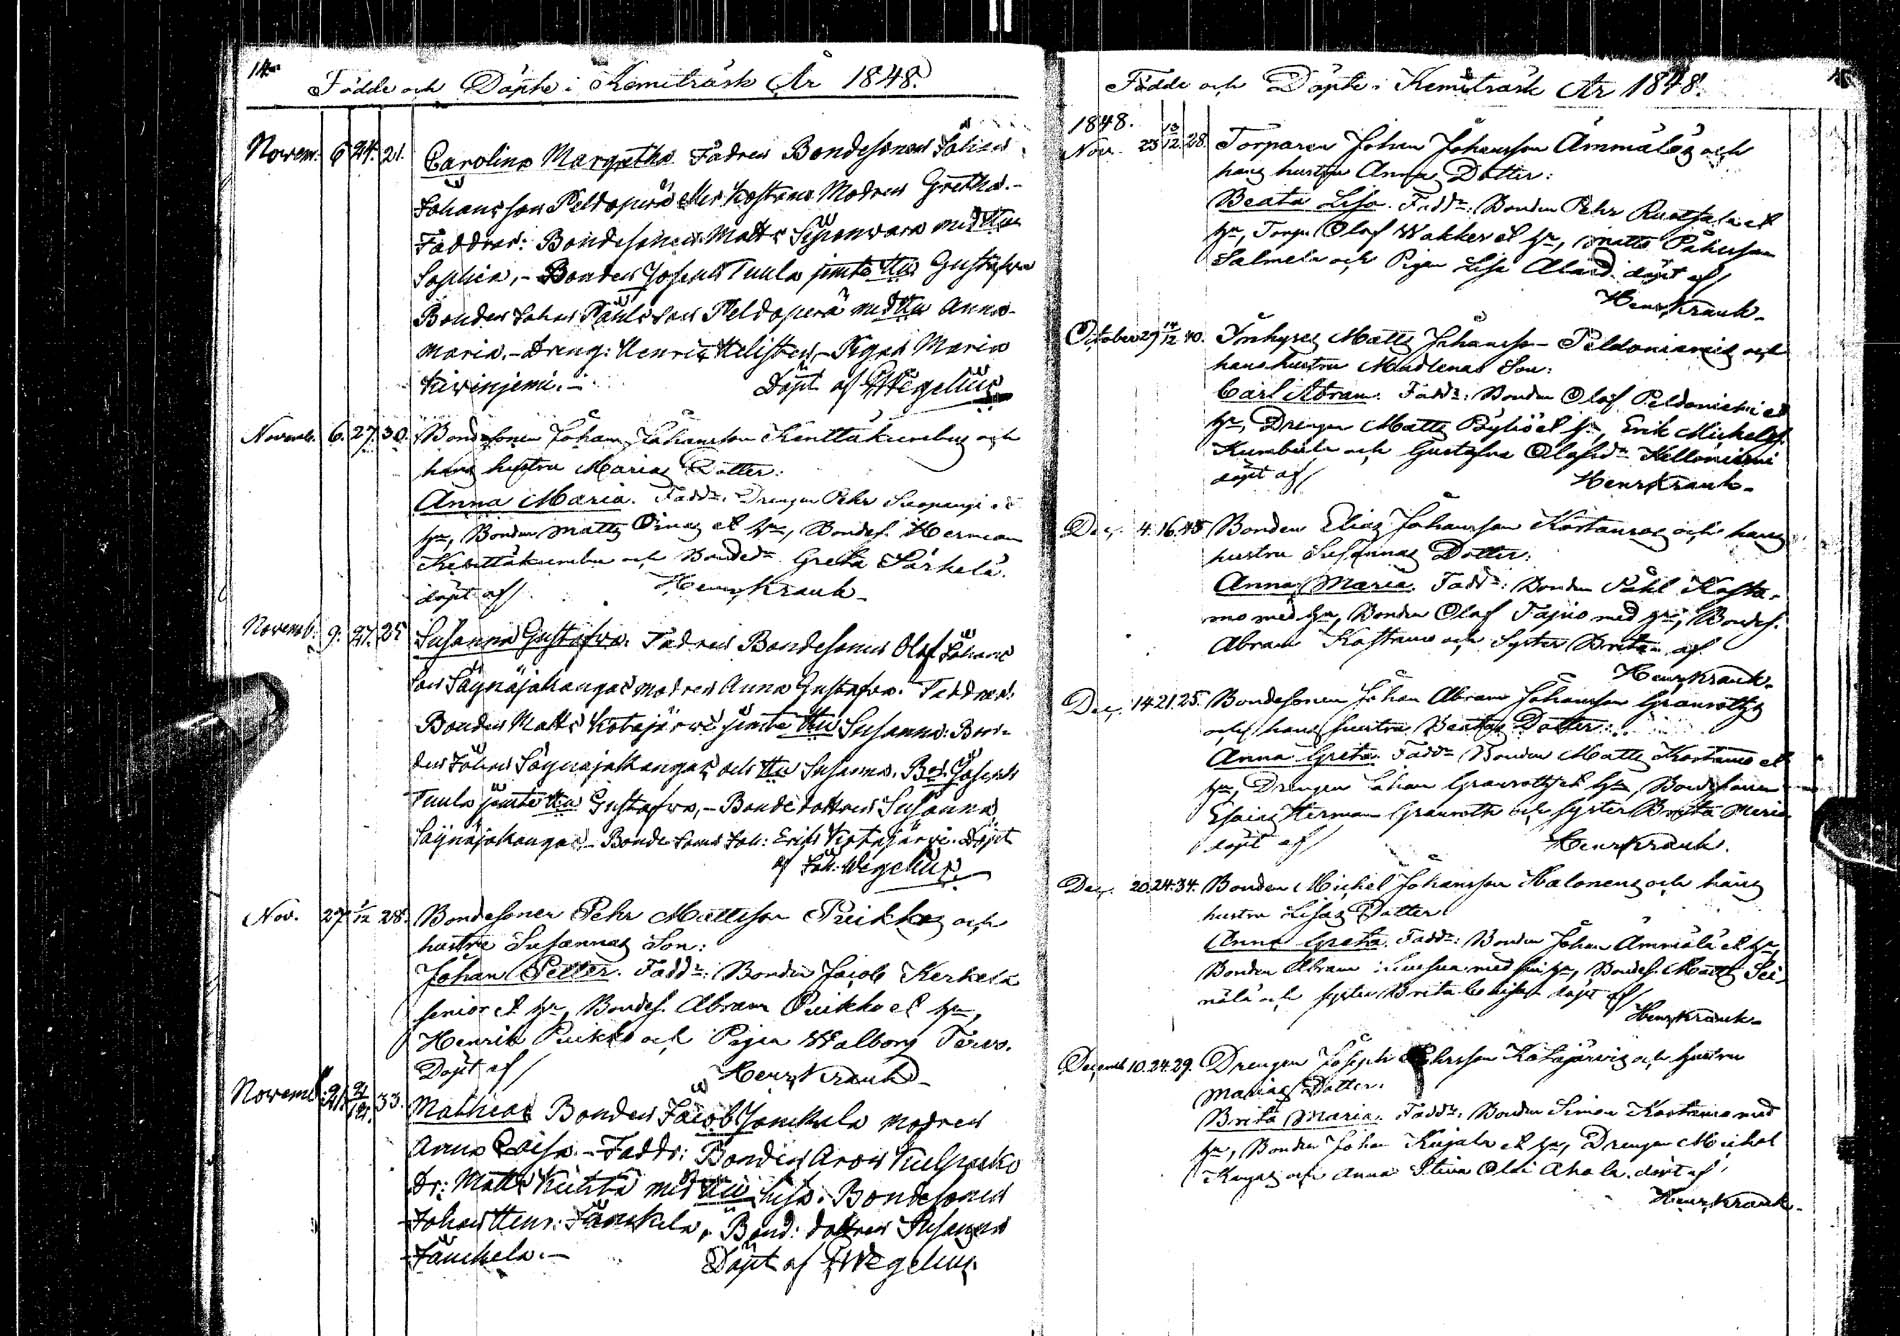 14
Födde och Döpte i Kemiträsk År 1848.
Novem. 6 24. 21. Carolina Margretha. Fadren Bondesonen Johan
Johansson Peldoperä eller Kostamo Modren Gretha.
Faddrar: Bondesonen Matts
Sophia, - Bonden Joseph Tuula jemte Hu Gustafva
Bonden Johan Påhlsson Peldoperä med Hu Anna
Maria. - Dreng: Henric - Pigan Maria
Kivinjemi. - Döpt af Wegelius
Novemb. 6. 27. 30. Bondesonen Johan Johansson Kenttäkumbu och
hans hustru Marias Dotter:
Anna Maria. Fadd: Drengen Pehr
Bonden Matts Oinas et hu, Bondes. Herman
Kenttäkumbu och Bonded Greta Särkelä.
döpt af Henr Krank
Novemb. 9. 27. 25 Susanna Gustafva. Fadren Bondesonen Olof Johans
son Säynäjäkangas modren Anna Gustafva. Faddrar:
Bonden Matts Kotajärvi jemte Hu Susanna. Bon-
den Johan Säynäjäkangas och Hu Susanna. Bd. Joseph
Tuula jemte Hu Gustafva, - Bondedottren Susanna
Säynäjäkangas - Bonde Sonen Joh: Erik Kotajärvi. Döpt
af Joh: Wegelius.
Nov. 27 1/12 28. Bondesonen Pehr Mattsson Puikkos och
hustru Susannas Son:
Johan Petter. Fadd: Bonden Jacob Kerkelä
senior et hu, Bondes. Abram Puikko et hu,
Henrik Puikko och Pigan Walborg Tervo.
Döpt af Henr Krank
Novemb: 21. 21/12. 33. Mathias Bonden Jacob Jauckela modren
Anna Caisa - Faddr: Bonden Aron
Dr: Matts med Hu Lisa. Bondesonen
Johan Henr: Jauckela, Bond: dottren Susanna
Jauckela. - Döpt af Wegelius
Födde och Döpte i Kemiträsk År 1848.
1848.
Nov. 23 13/12 28. Torparen Johan Johansson Ämmäläs och
hans hustru Anna Dotter:
Beata Lisa. Fadd: Bonden Pehr Ruotsala et
hu, Torp. Olof Wakker et hu, Matts
Salmela och Pigan Lisa döpt af
Henr Krank
October 29 14/12 40. Inhyses Matts Johansson Peldoniemis och
hans hustru Madlenas Son:
Carl Abram. Fadd: Bonden Olof Peldoniemi et
hu, Drengen Matts Pöyliö et hu, Erik Michelss.
och Gustafva Olofsdr Kelloniemi
döpt af Henr Krank
Dec. 4. 16. 45 Bonden Elias Johansson Kostamos och hans
hustru Susannas Dotter:
Anna Maria. Fadd: Bonden Påhl Kosta-
mo med hu, Bonden Olof Tapio med hu, Bondes.
Abram Kostamo och Syster Brita af
Henr Krank
Dec. 14. 21. 25. Bondesonen Johan Abram Johansson Granroths
och hans hustru Beatas Dotter:
Anna Greta. Fadd: Bonden Matts Kostamo et
hu, Drengen Johan Granroth et hu, Bondesonen
Esaias Herman Granroth och syster Brita Maria
döpt af Henr Krank.
Dec. 20. 24. 34. Bonden Michel Johansson Halonens och hans
hustru Lisas Dotter
Anna Greta. Fadd: Bonden Johan Ämmälä et hu
Bonden Abram med sin hu, Bondes. Matts Sei-
nälä och syster Brita döpt af
Henr Krank
Decemb 10. 24. 29. Drengen Joseph Kotajärvis och hustru
Marias Dotter:
Brita Maria. Fadd: Bonden Simon Kostamo med
hu, Bonden Johan Kujala et hu, Drengen Michel
och Anna Stina Ahola. döpt af
Henr Krank